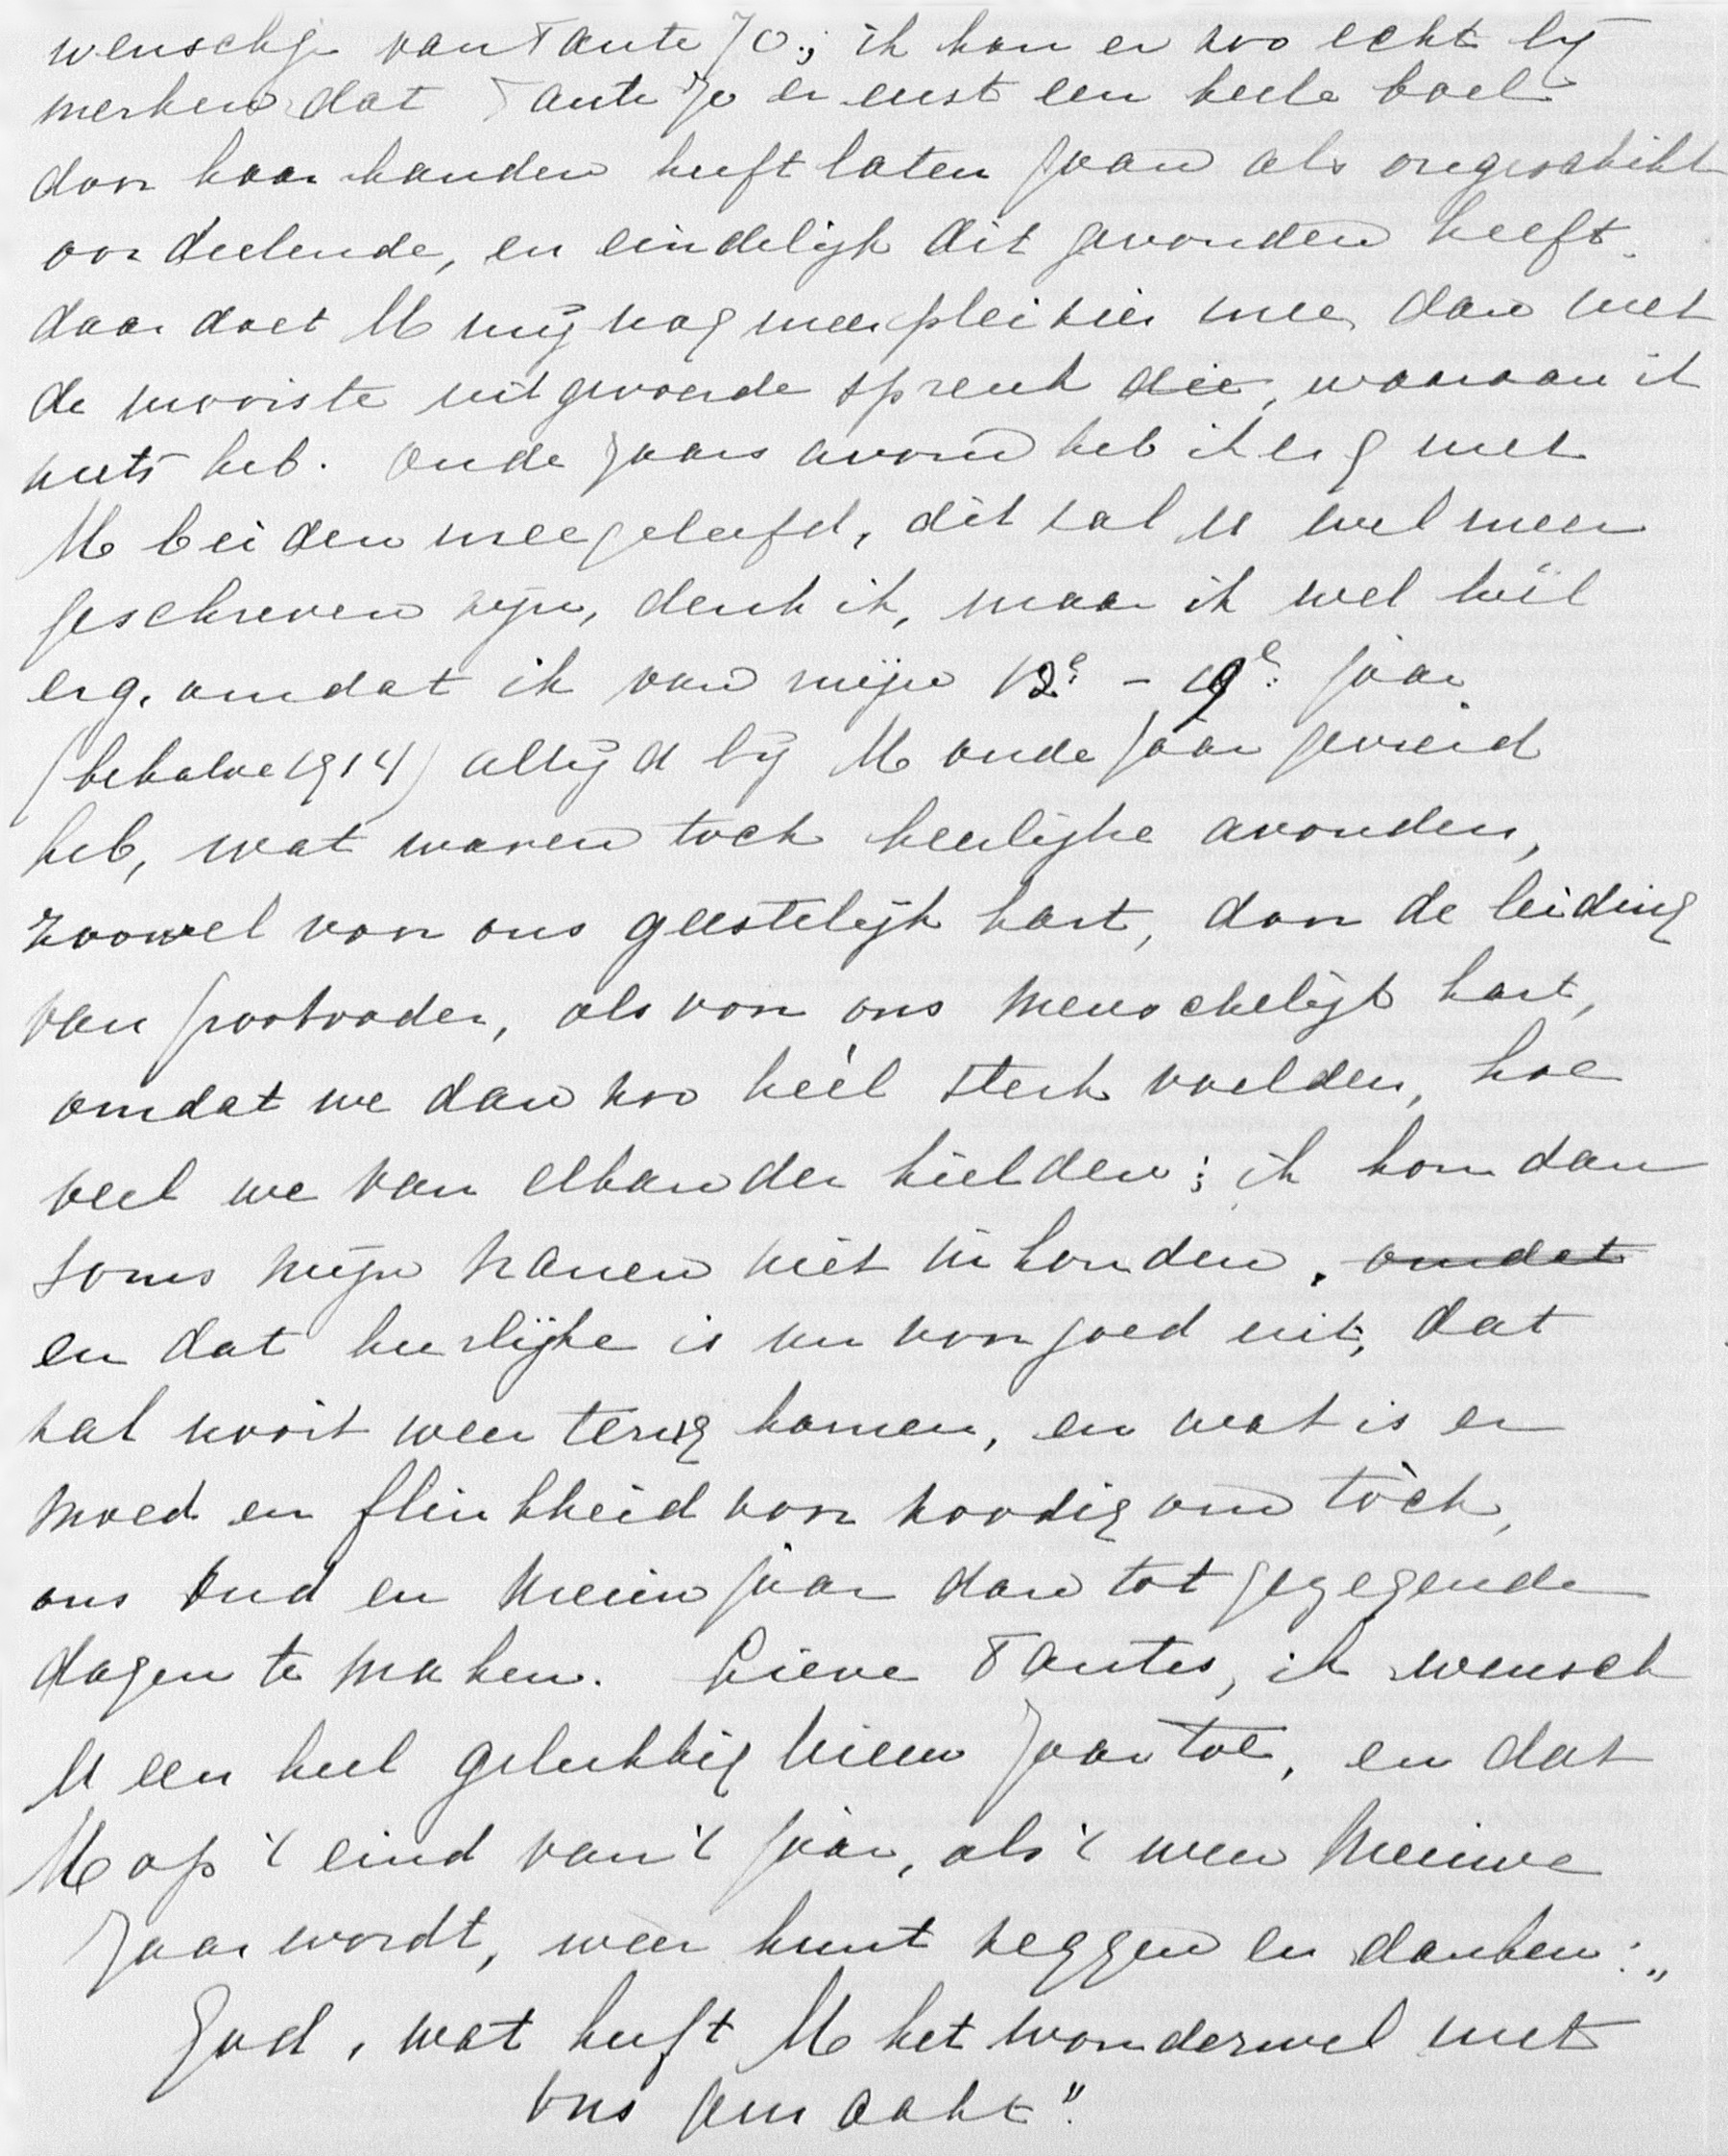 wenschje van Tante Jo.; ik kan er zoo echt bij
merken dat Tante Jo er eerst een heele boel
door haar handen heeft laten gaan als ongeschikt
oordeelende, en eindelijk dit gevonden heeft.
daar doet U mij nog meer pleizier mee, dan met
de mooiste uitgevoerde spreuk die, waaraan ik
niets heb. Oude jaars avond heb ik erg met
U beiden meegeleefd, dit zal U wel meer
geschreven zijn, denk ik, maar ik wel héél
erg. omdat ik van mijn 12e - 19e jaar
(behalve 1914) altijd bij U oude jaar gevierd
heb, wat waren toch heerlijke avonden,
zoowel voor ons geestelijk hart, door de leiding
van grootvader, als voor ons menschelijk hart,
omdat we dan zoo héél sterk voelden, hoe
veel we van elkander hielden; ik kon dan
soms mijn tranen niet inhouden. omdat
en dat heerlijke is nu voorgoed uit, dat
zal nooit weer terug komen, en wat is er
moed en flinkheid voor noodig om tòch,
ons Oud en Nieuw jaar dan tot gezegende
dagen te maken. Lieve Tantes, ik wensch
U een heel gelukkig Nieuw Jaar toe, en dat
U op 't eind van 't jaar, als 't weer Nieuwe
Jaar wordt, weer kunt zeggen en danken: „
God, wat heeft U het wonderwel met
ons gemaakt".